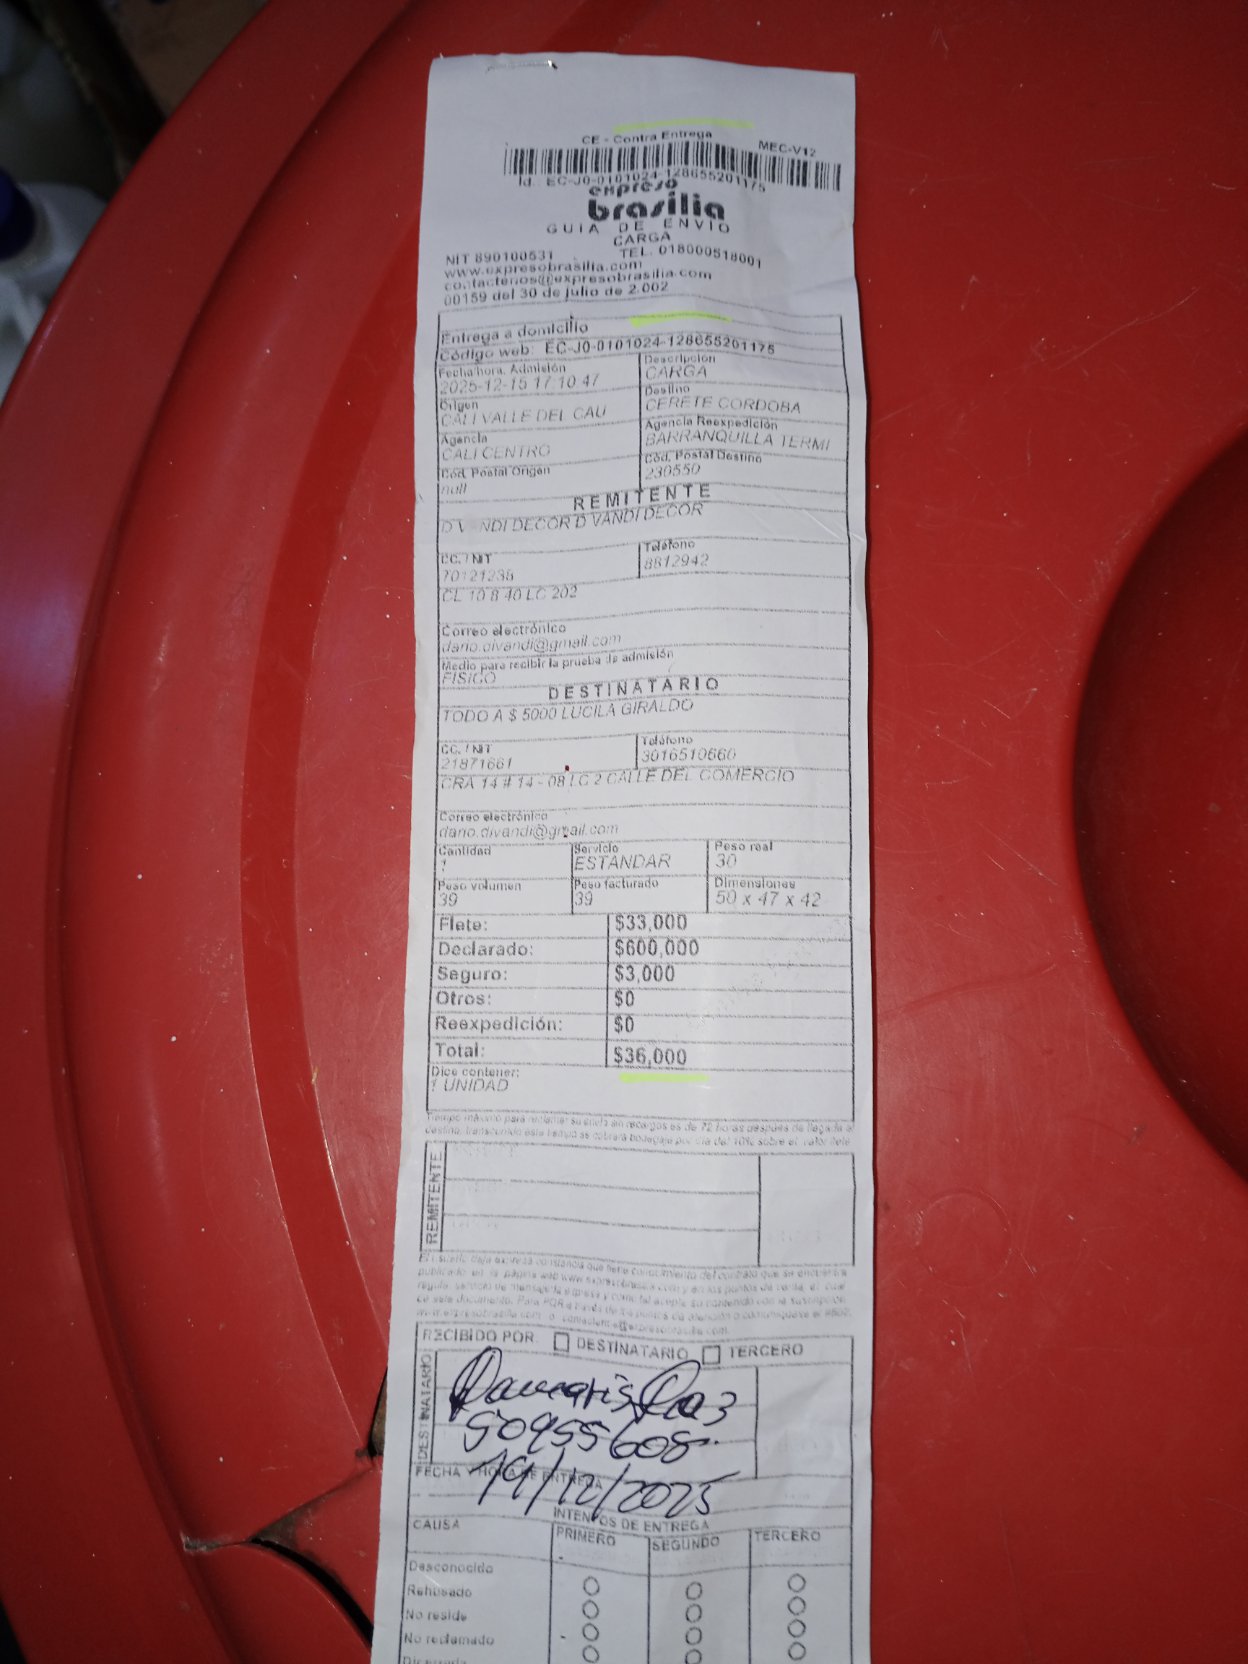 CE - Contra Entrega
MEC-V12
Id.: EC-J0-0101024-128655201175
expreso
brasilia
GUIA DE ENVIO
CARGA
NIT 890100531 TEL. 018000518001
www.expresobrasilia.com
contactenos@expresobrasilia.com
00159 del 30 de julio de 2.002
Entrega a domicilio
Código web: EC-J0-0101024-128655201175
Fecha/hora. Admisión Descripción
2025-12-15 17:10:47 CARGA
Origen Destino
CALI VALLE DEL CAU CERETE CORDOBA
Agencia Agencia Reexpedición
CALI CENTRO BARRANQUILLA TERMI
Cód. Postal Origen Cód. Postal Destino
null 230550
REMITENTE
D VANDI DECOR D VANDI DECOR
CC. / NIT Teléfono
70121235 8812942
CL 10 8 40 LC 202
Correo electrónico
dario.divandi@gmail.com
Medio para recibir la prueba de admisión
FISICO
DESTINATARIO
TODO A $ 5000 LUCILA GIRALDO
CC. / NIT Teléfono
21871661 3016510660
CRA 14 # 14 - 08 LC 2 CALLE DEL COMERCIO
Correo electrónico
dario.divandi@gmail.com
Cantidad Servicio Peso real
1 ESTANDAR 30
Peso volumen Peso facturado Dimensiones
39 39 50 x 47 x 42
Flete: $33,000
Declarado: $600,000
Seguro: $3,000
Otros: $0
Reexpedición: $0
Total: $36,000
Dice contener:
1 UNIDAD
Tiempo máximo para reclamar su envío sin recargos es de 72 horas después de llegada a
destino, transcurrido este tiempo se cobrará bodegaje por día del 10% sobre el valor flete
REMITENTE
El usuario deja expresa constancia que tiene conocimiento del contrato que se encuentra
publicado en la página web www.expresobrasilia.com y en los puntos de venta, el cual
regula servicio de mensajería expresa y como tal acepta su contenido con la suscripción
de este documento. Para PQR a través de los puntos de atención o comuníquese al
www.expresobrasilia.com o contactenos@expresobrasilia.com.
RECIBIDO POR DESTINATARIO TERCERO
DESTINATARIO
Damaris
50955608
19/12/2025
FECHA Y HORA DE ENTREGA
INTENTOS DE ENTREGA
CAUSA PRIMERO SEGUNDO TERCERO
Desconocido
Rehusado
No reside
No reclamado